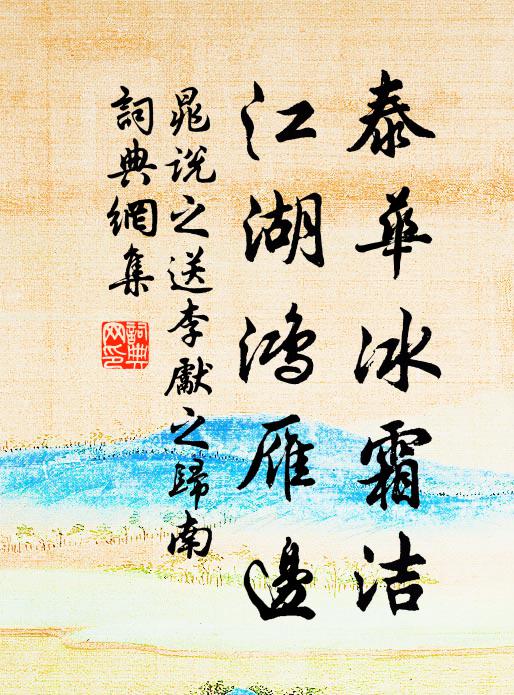 泰華冰霜洁
江湖鸿雁邊
晁說之送李獻之歸南
詞典網集
詞典网印